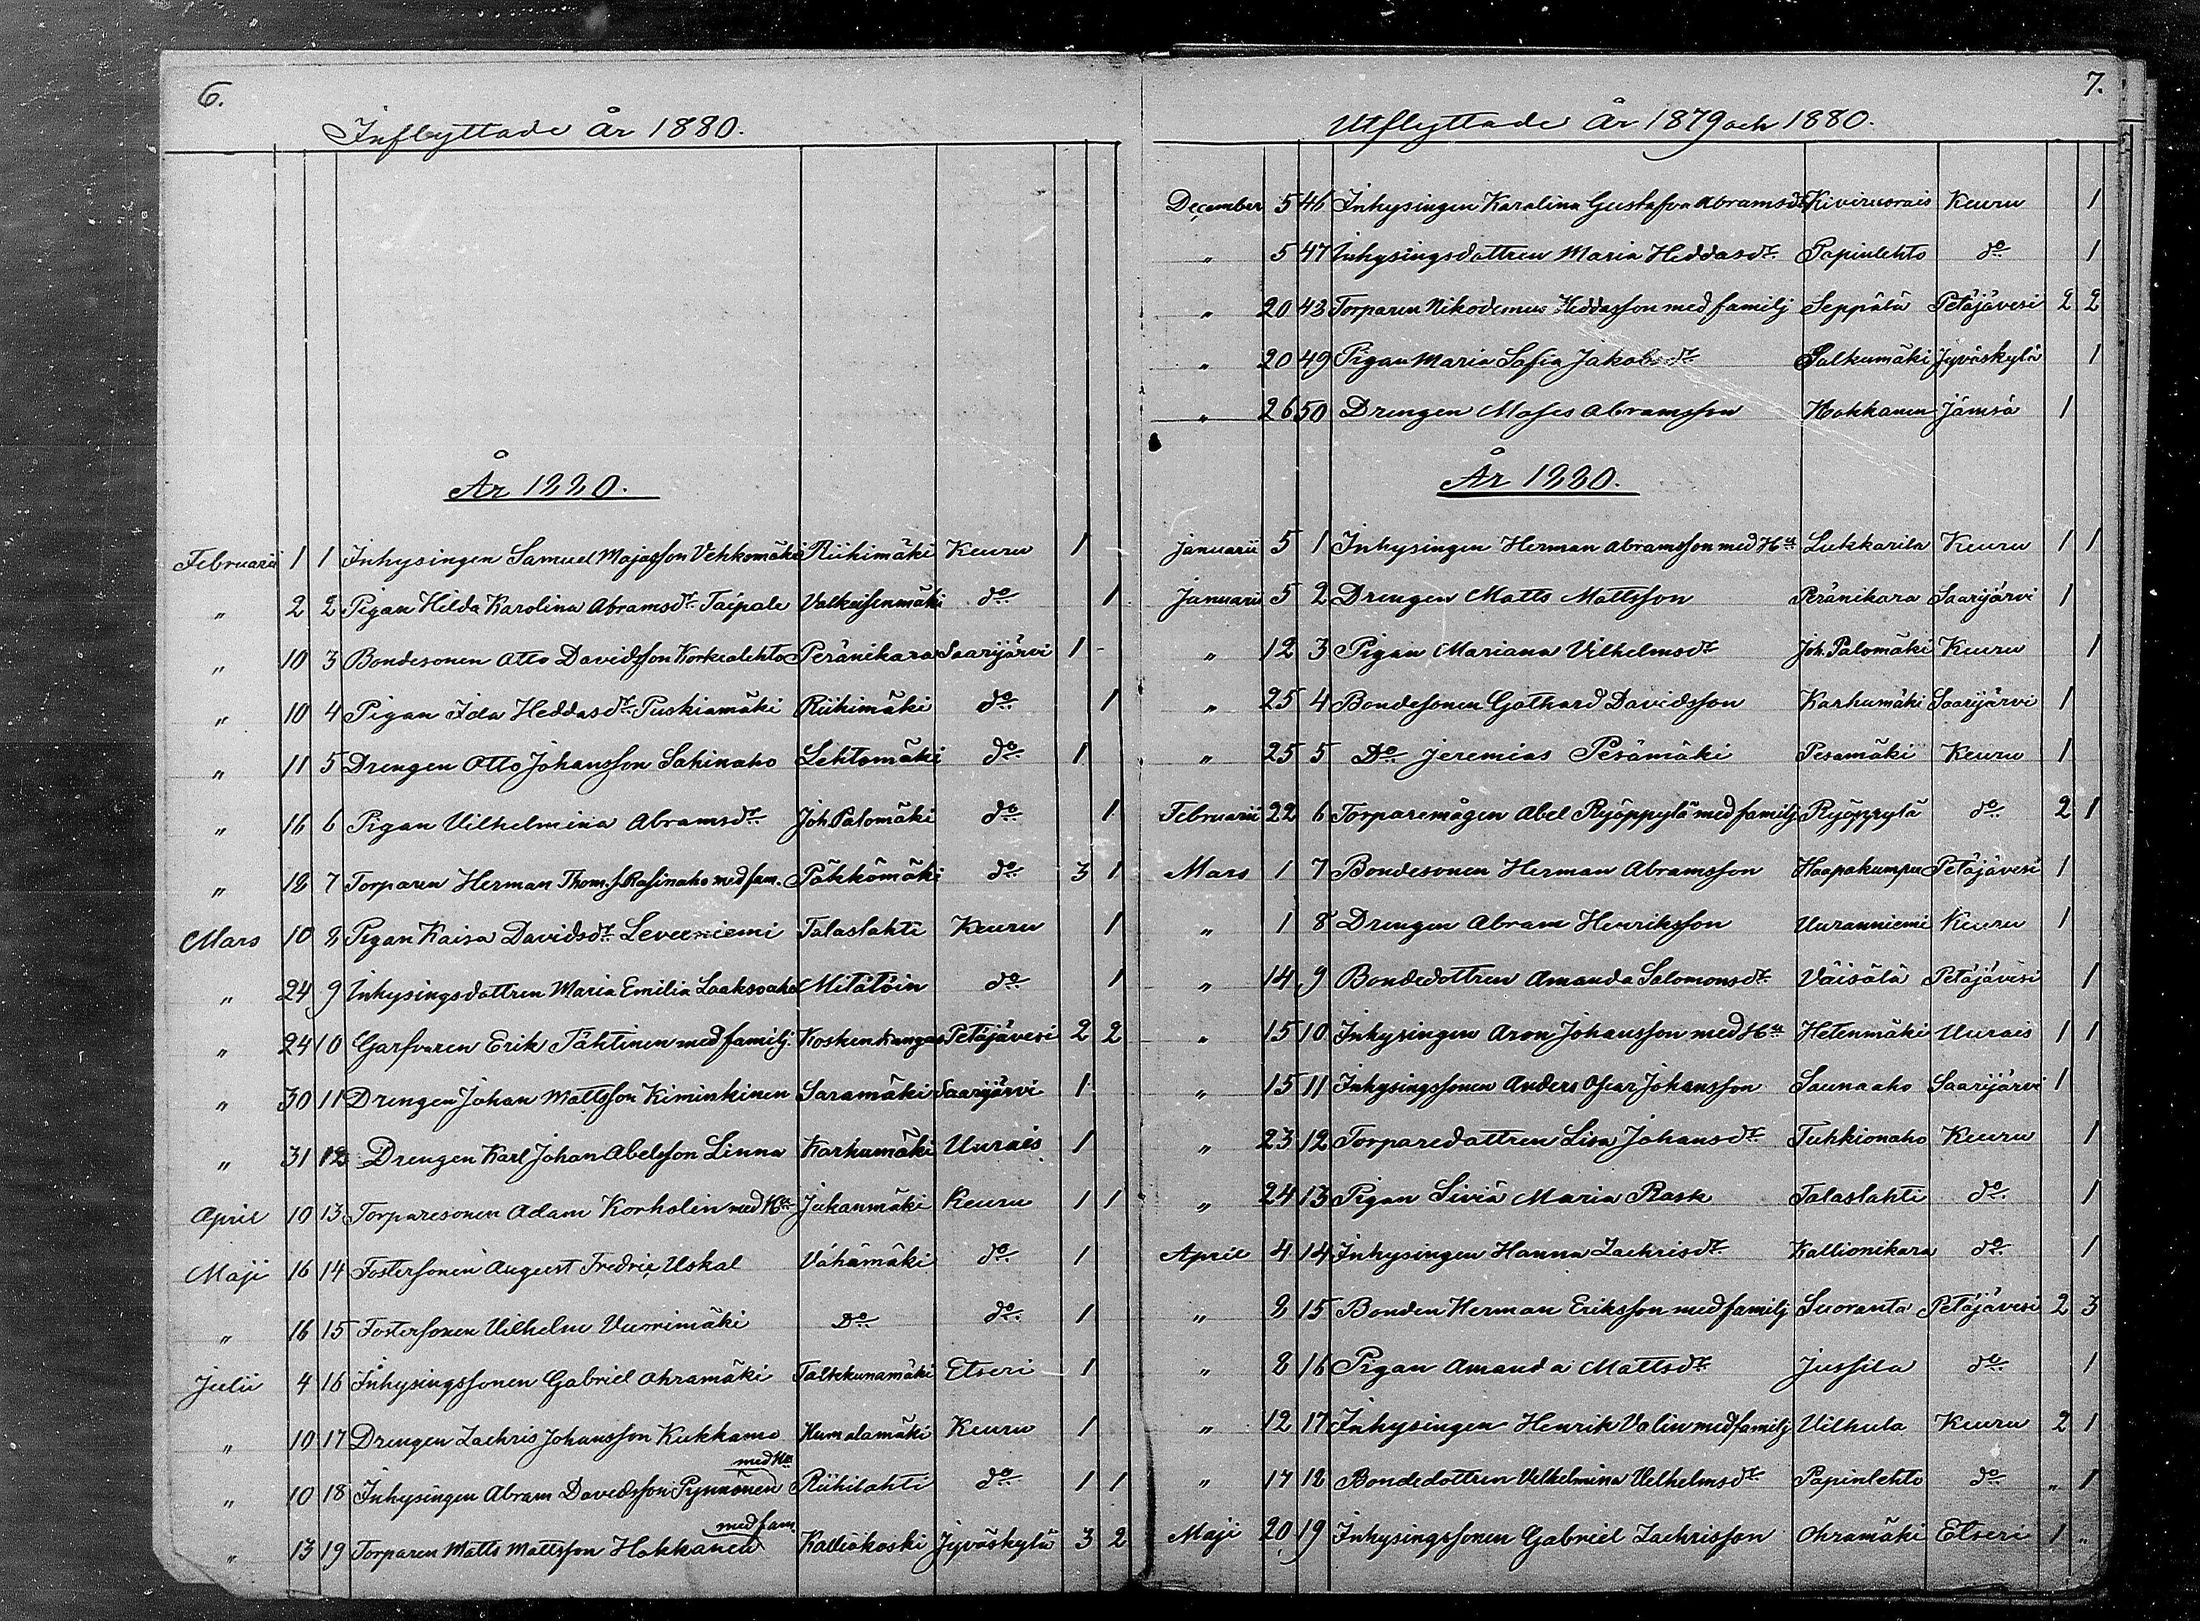 6.
Inflyttade År 1880.
År 1880.
Februarii 1 1 Inhysingen Samuel Majasson Vehkomäki Riihimäki Keuru 1
" 2 2 Pigan Hilda Karolina Abramsdr. Taipale Valkeisenmäki do 1
" 10 3 Bondesonen Otto Davidsson Korkealehto Peränikara Saarijärvi 1 -
" 10 4 Pigan Ida Heddasdr. Puskiamäki Riihimäki do 1
" 11 5 Drengen Otto Johansson Sahinaho Lehtomäki do 1
" 16 6 Pigan Vilhelmina Abramsdr. Joh. Palomäki do 1
" 18 7 Torparen Herman Thom.s. Rasinaho med fam. Päkkömäki do 3 1
Mars 10 8 Pigan Kaisa Davidsdr. Leveeniemi Talaslahti Keuru 1
" 24 9 Inhysingsdottren Maria Emilia Laaksoaho Mitätöin do 1
" 24 10 Garfvaren Erik Tähtinen med familj Koskenkangas Petäjävesi 2 2
" 30 11 Drengen Johan Mattsson Kiminkinen Saramäki Saarijärvi 1
" 31 12 Drengen Karl Johan Abelsson Linna Karhumäki Uurais 1
April 10 13 Torparesonen Adam Korholin med Hu Juhanmäki Keuru 1 1
Maji 16 14 Fostersonen August Fredric Uskal Vähämäki do 1
" 16 15 Fostersonen Vilhelm Vuorimäki Do do 1
Julii 4 16 Inhysingssonen Gabriel Ohramäki Taltekunamäki Etseri 1
" 10 17 Drengen Zachris Johansson Kukkamo Humalamäki Keuru 1
" 10 18 Inhysingen Abram Davidsson Pynnönen med Hu Riihilahti do 1 1
" 13 19 Torparen Matts Mattsson Hakkanen med fam. Kalliokoski Jyväskylä 3 2
7.
Utflyttade År 1879 och 1880.
December 5 46 Inhysingen Karolina Gustafva Abramsdr Kivirusrais Keuru 1
" 5 47 Inhysingsdottren Maria Heddasdr. Papinlehto do 1
" 20 48 Torparen Nikodemus Heddasson med familj Seppälä Petäjävesi 2 2
" 20 49 Pigan Maria Sofia Jakobsdr Palkumäki Jyväskylä 1
" 26 50 Drengen Moses Abramsson Hakkanen Jämsä 1
År 1880.
Januarii 5 1 Inhysingen Herman Abramsson med Hu Lukkarila Keuru 1 1
Januarii 5 2 Drengen Matts Mattsson Peränikara Saarijärvi 1
" 12 3 Pigan Mariana Vilhelmsdr Joh. Palomäki Keuru 1
" 25 4 Bondesonen Gothard Davidsson Karhumäki Saarijärvi 1
" 25 5 Do Jeremias Pesämäki Pesamäki Keuru 1
Februarii 22 6 Torparemågen Abel Ryöppylä med familj Ryöppylä do 2 1
Mars 1 7 Bondesonen Herman Abramsson Haapakumpu Petäjävesi 1
" 1 8 Drengen Abram Henriksson Uuranniemi Keuru 1
" 14 9 Bondedottren Amanda Salomonsdr. Väisälä Petäjävesi 1
" 15 10 Inhysingen Aron Johansson med Hu Hetenmäki Uurais 1 1
" 15 11 Inhysingssonen Anders Oscar Johansson Saunaaho Saarijärvi 1
" 23 12 Torparedottren Lisa Johansdr Tuhkionaho Keuru 1
" 24 13 Pigan Siviä Maria Rask Talaslahti do 1
April 4 14 Inhysingen Hanna Zachrisdr. Kallionikara do 1
" 8 15 Bonden Herman Eriksson med familj Suoranta Petäjävesi 2 3
" 8 16 Pigan Amanda Mattsdr. Jussila do 1
" 12 17 Inhysingen Henrik Valin med familj Vilhula Keuru 2 1
" 17 18 Bondedottren Vilhelmina Vilhelmsdr Papinlehto do " 1
Maji 20 19 Inhysingssonen Gabriel Zachrisson Ohramäki Etseri 1 "